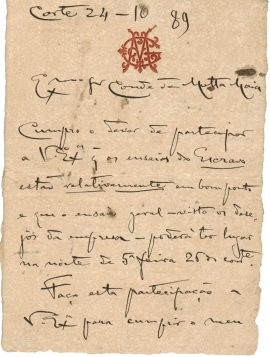 Corte 24-10 89
Exmo Sr Conde da Motta Maia
Cumpro o dever de participar
a V. Exª q os ensaios do Escravo
estão relativamente em bom ponto
e que o ensaio geral - visto os dese-
jos da empreza - poderá ter lugar
na noite de 5ª feira 26 do corrte.
Faço esta participação a
V. Exª para cumprir o meu